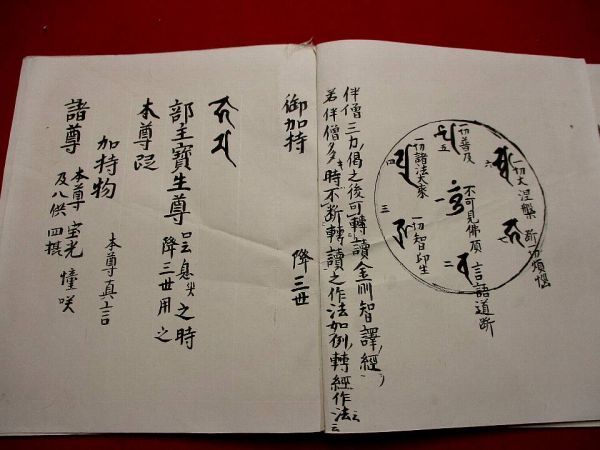 一切普及
五
六
一切大涅槃 断一切煩惱
四
一切諸法大乘
不可見佛頂
一
言語道断
三
一切智印生
二
伴僧三力偈之後可轉讀金剛智譯經
若伴僧多キ時不断轉讀之作法如例轉經作法云云
御加持 降三世
部主寶生尊 之時
本尊段 降三世用之
加持物 本尊真言
諸尊 本尊宝光幢咲
及八供四摂